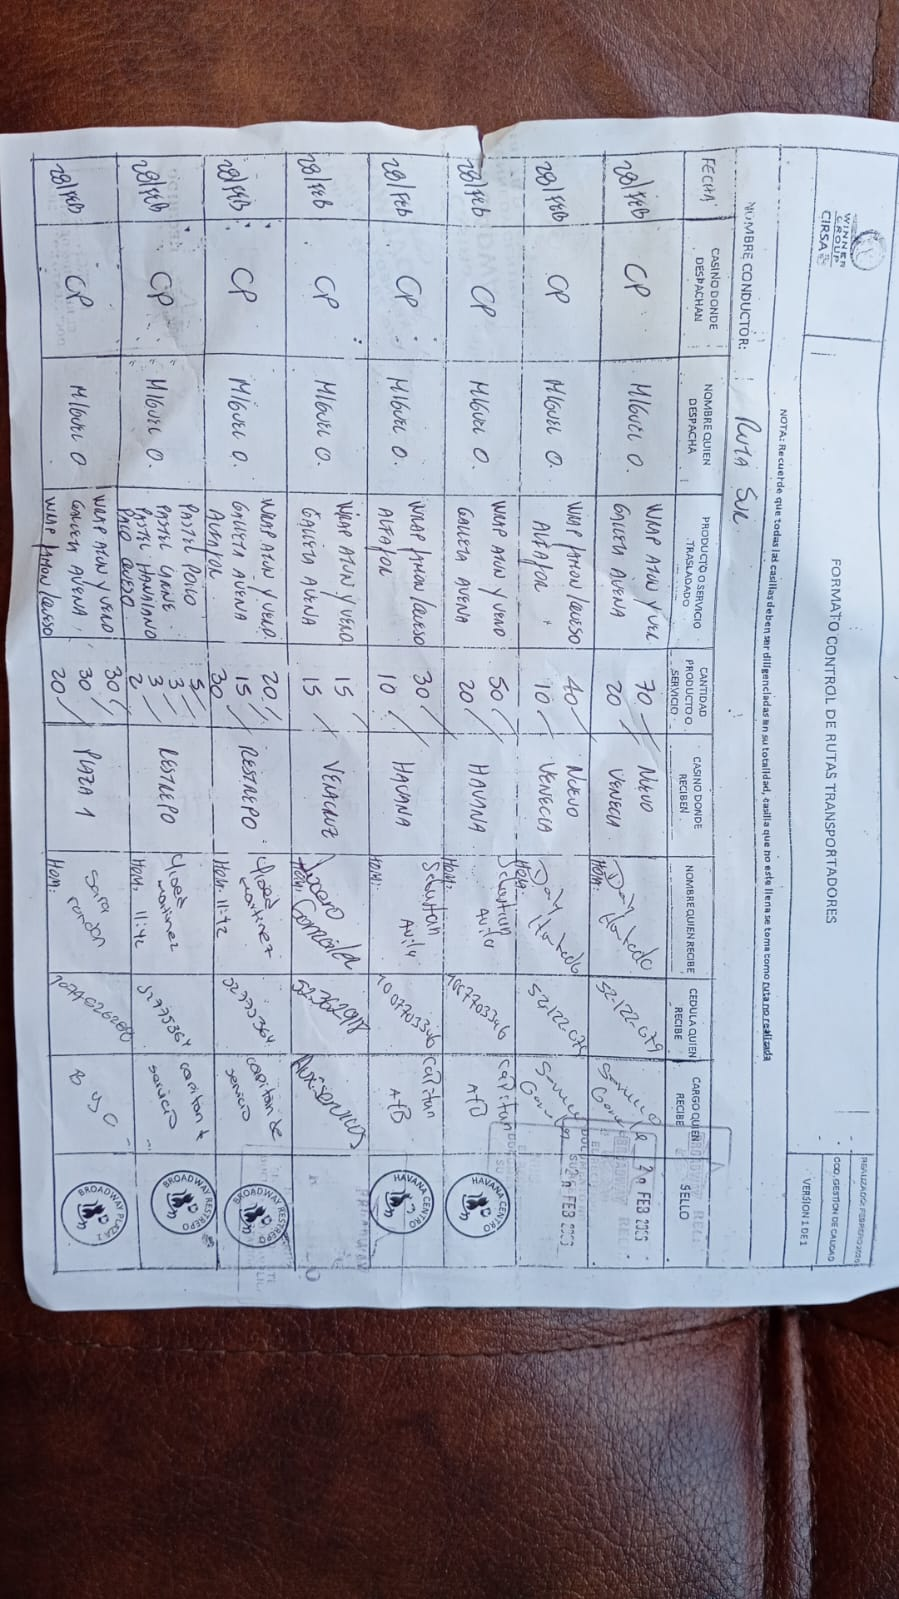 WINNER
GROUP
CIRSA
FORMATO CONTROL DE RUTAS TRANSPORTADORES
REALIZADO: FEBRERO
COD. GESTION DE CALIDAD
VERSION 1 DE 1
NOTA: Recuerde que todas las casillas deben ser diligenciadas en su totalidad, casilla que no este llena se toma como ruta no realizada
NOMBRE CONDUCTOR: RUTA SUR
FECHA CASINO DONDE DESPACHAN NOMBRE QUIEN DESPACHA PRODUCTO O SERVICIO TRASLADADO CANTIDAD PRODUCTO O SERVICIO CASINO DONDE RECIBEN NOMBRE QUIEN RECIBE CEDULA QUIEN RECIBE CARGO QUIEN RECIBE SELLO
28/FEB CP MIGUEL O. WRAP ATUN Y VER 70 NUEVO
GALLETA AVENA 20 VENECIA HORA: 52-122-079
FEB
28/FEB CP MIGUEL O. WRAP JAMON/QUESO 40 NUEVO
ALFAJOR 10 VENECIA HORA:
FEB
28/FEB CP MIGUEL O. WRAP ATUN Y VERD 50 HAVANA Sebastian Avila Capitan
GALLETA AVENA 20 HORA: 1007703346 AYB
HAVANA CENTRO
28/FEB CP MIGUEL O. WRAP JAMON/QUESO 30 HAVANA Sebastian Avila Capitan
ALFAJOR 10 HORA: 1007703346 AYB
HAVANA CENTRO
28/FEB CP MIGUEL O. WRAP ATUN Y VERD 15 VERACRUZ
GALLETA AVENA 15 HORA: 52362918 Aux. servicios
28/FEB CP MIGUEL O. WRAP ATUN Y VERD 20 RESTREPO martinez capitan de
GALLETA AVENA 15 HORA: 11:42 52775364 servicio
ALFAJOR 30
BROADWAY RESTREPO
28/FEB CP MIGUEL O. PASTEL POLLO 5 RESTREPO martinez capitan de
PASTEL CARNE 3 HORA: 11:42 52775364 servicio
PASTEL HAWAIANO 3
PALO QUESO 2
BROADWAY RESTREPO
28/FEB CP MIGUEL O WRAP ATUN Y VERD 30 PLAZA 1 Saira rondon
GALLETA AVENA 30 HORA:
WRAP JAMON/QUESO 20
BROADWAY PLAZA 1